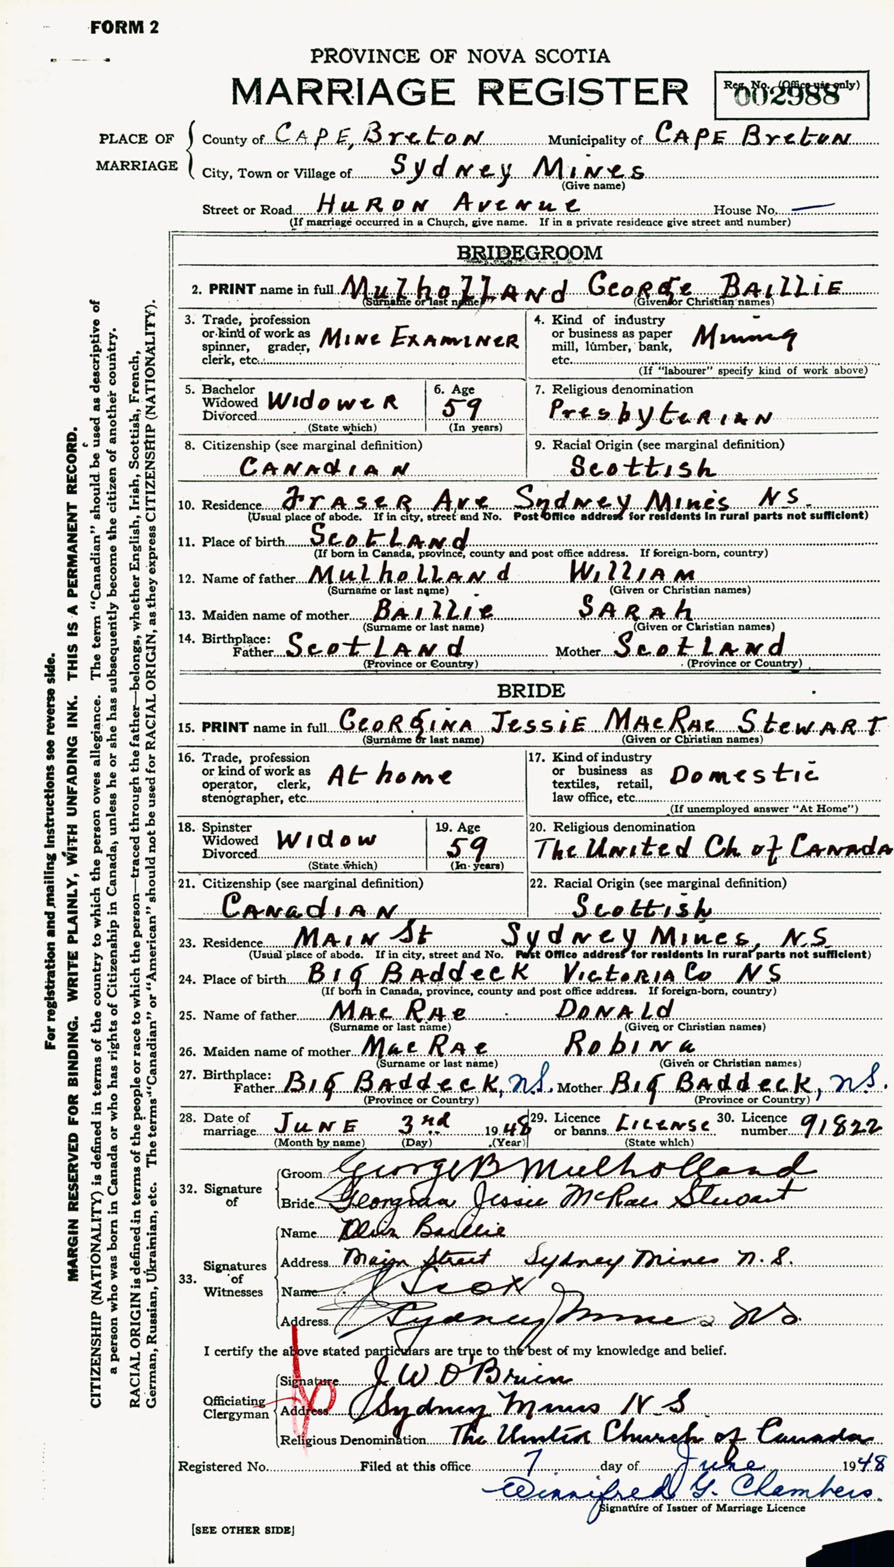 FORM 2
PROVINCE OF NOVA SCOTIA
MARRIAGE REGISTER
Reg. No. (Office use only)
002988
PLACE OF MARRIAGE
County of CAPE, Breton Municipality of CAPE Breton
City, Town or Village of Sydney Mines
(Give name)
Street or Road Huron Avenue House No. —
(If marriage occurred in a Church, give name. If in a private residence give street and number)
BRIDEGROOM
2. PRINT name in full Mulholland George Baillie
(Surname or last name) (Given or Christian names)
3. Trade, profession or kind of work as spinner, grader, clerk, etc. Mine Examiner
4. Kind of industry or business as paper mill, lumber, bank, etc. Mining
(If "labourer" specify kind of work above)
5. Bachelor Widowed Divorced Widower
(State which)
6. Age 59
(In years)
7. Religious denomination Presbyterian
8. Citizenship (see marginal definition) Canadian
9. Racial Origin (see marginal definition) Scottish
10. Residence Fraser Ave Sydney Mines NS.
(Usual place of abode. If in city, street and No. Post Office address for residents in rural parts not sufficient)
11. Place of birth Scotland
(If born in Canada, province, county and post office address. If foreign-born, country)
12. Name of father Mulholland William
(Surname or last name) (Given or Christian names)
13. Maiden name of mother Baillie Sarah
(Surname or last name) (Given or Christian names)
14. Birthplace:
Father Scotland Mother Scotland
(Province or Country) (Province or Country)
BRIDE
15. PRINT name in full Georgina Jessie MacRae Stewart
(Surname or last name) (Given or Christian names)
16. Trade, profession or kind of work as operator, clerk, stenographer, etc. At home
17. Kind of industry or business as textiles, retail, law office, etc. Domestic
(If unemployed answer "At Home")
18. Spinster Widowed Divorced Widow
(State which)
19. Age 59
(In years)
20. Religious denomination The United Ch of Canada
21. Citizenship (see marginal definition) Canadian
22. Racial Origin (see marginal definition) Scottish
23. Residence Main St Sydney Mines, N.S
(Usual place of abode. If in city, street and No. Post Office address for residents in rural parts not sufficient)
24. Place of birth Big Baddeck Victoria Co NS
(If born in Canada, province, county and post office address. If foreign-born, country)
25. Name of father MacRae Donald
(Surname or last name) (Given or Christian names)
26. Maiden name of mother MacRae Robina
(Surname or last name) (Given or Christian names)
27. Birthplace:
Father Big Baddeck, N.S. Mother Big Baddeck, N.S.
(Province or Country) (Province or Country)
28. Date of marriage June 3rd 1948
(Month by name) (Day) (Year)
29. Licence or banns License
(State which)
30. Licence number 91822
32. Signature of
Groom George B Mulholland
Bride Georgina Jessie McRae Stewart
33. Signatures of Witnesses
Name Baillie
Address Main Street Sydney Mines N.S.
Name
Address Sydney Mines NS.
I certify the above stated particulars are true to the best of my knowledge and belief.
Officiating Clergyman
Signature J W O'Brien
Address Sydney Mines N S
Religious Denomination The United Church of Canada
Registered No. Filed at this office 7 day of June 1948
Winnifred G. Chambers.
Signature of Issuer of Marriage Licence
[SEE OTHER SIDE]
For registration and mailing instructions see reverse side.
MARGIN RESERVED FOR BINDING. WRITE PLAINLY, WITH UNFADING INK. THIS IS A PERMANENT RECORD.
CITIZENSHIP (NATIONALITY) is defined in terms of the country to which the person owes allegiance. The term "Canadian" should be used as descriptive of
a person who was born in Canada or who has rights of Citizenship in Canada, unless he or she has subsequently become the citizen of another country.
RACIAL ORIGIN is defined in terms of the people or race to which the person—traced through the father—belongs, whether English, Irish, Scottish, French,
German, Russian, Ukrainian, etc. The terms "Canadian" or "American" should not be used for RACIAL ORIGIN, as they express CITIZENSHIP (NATIONALITY).